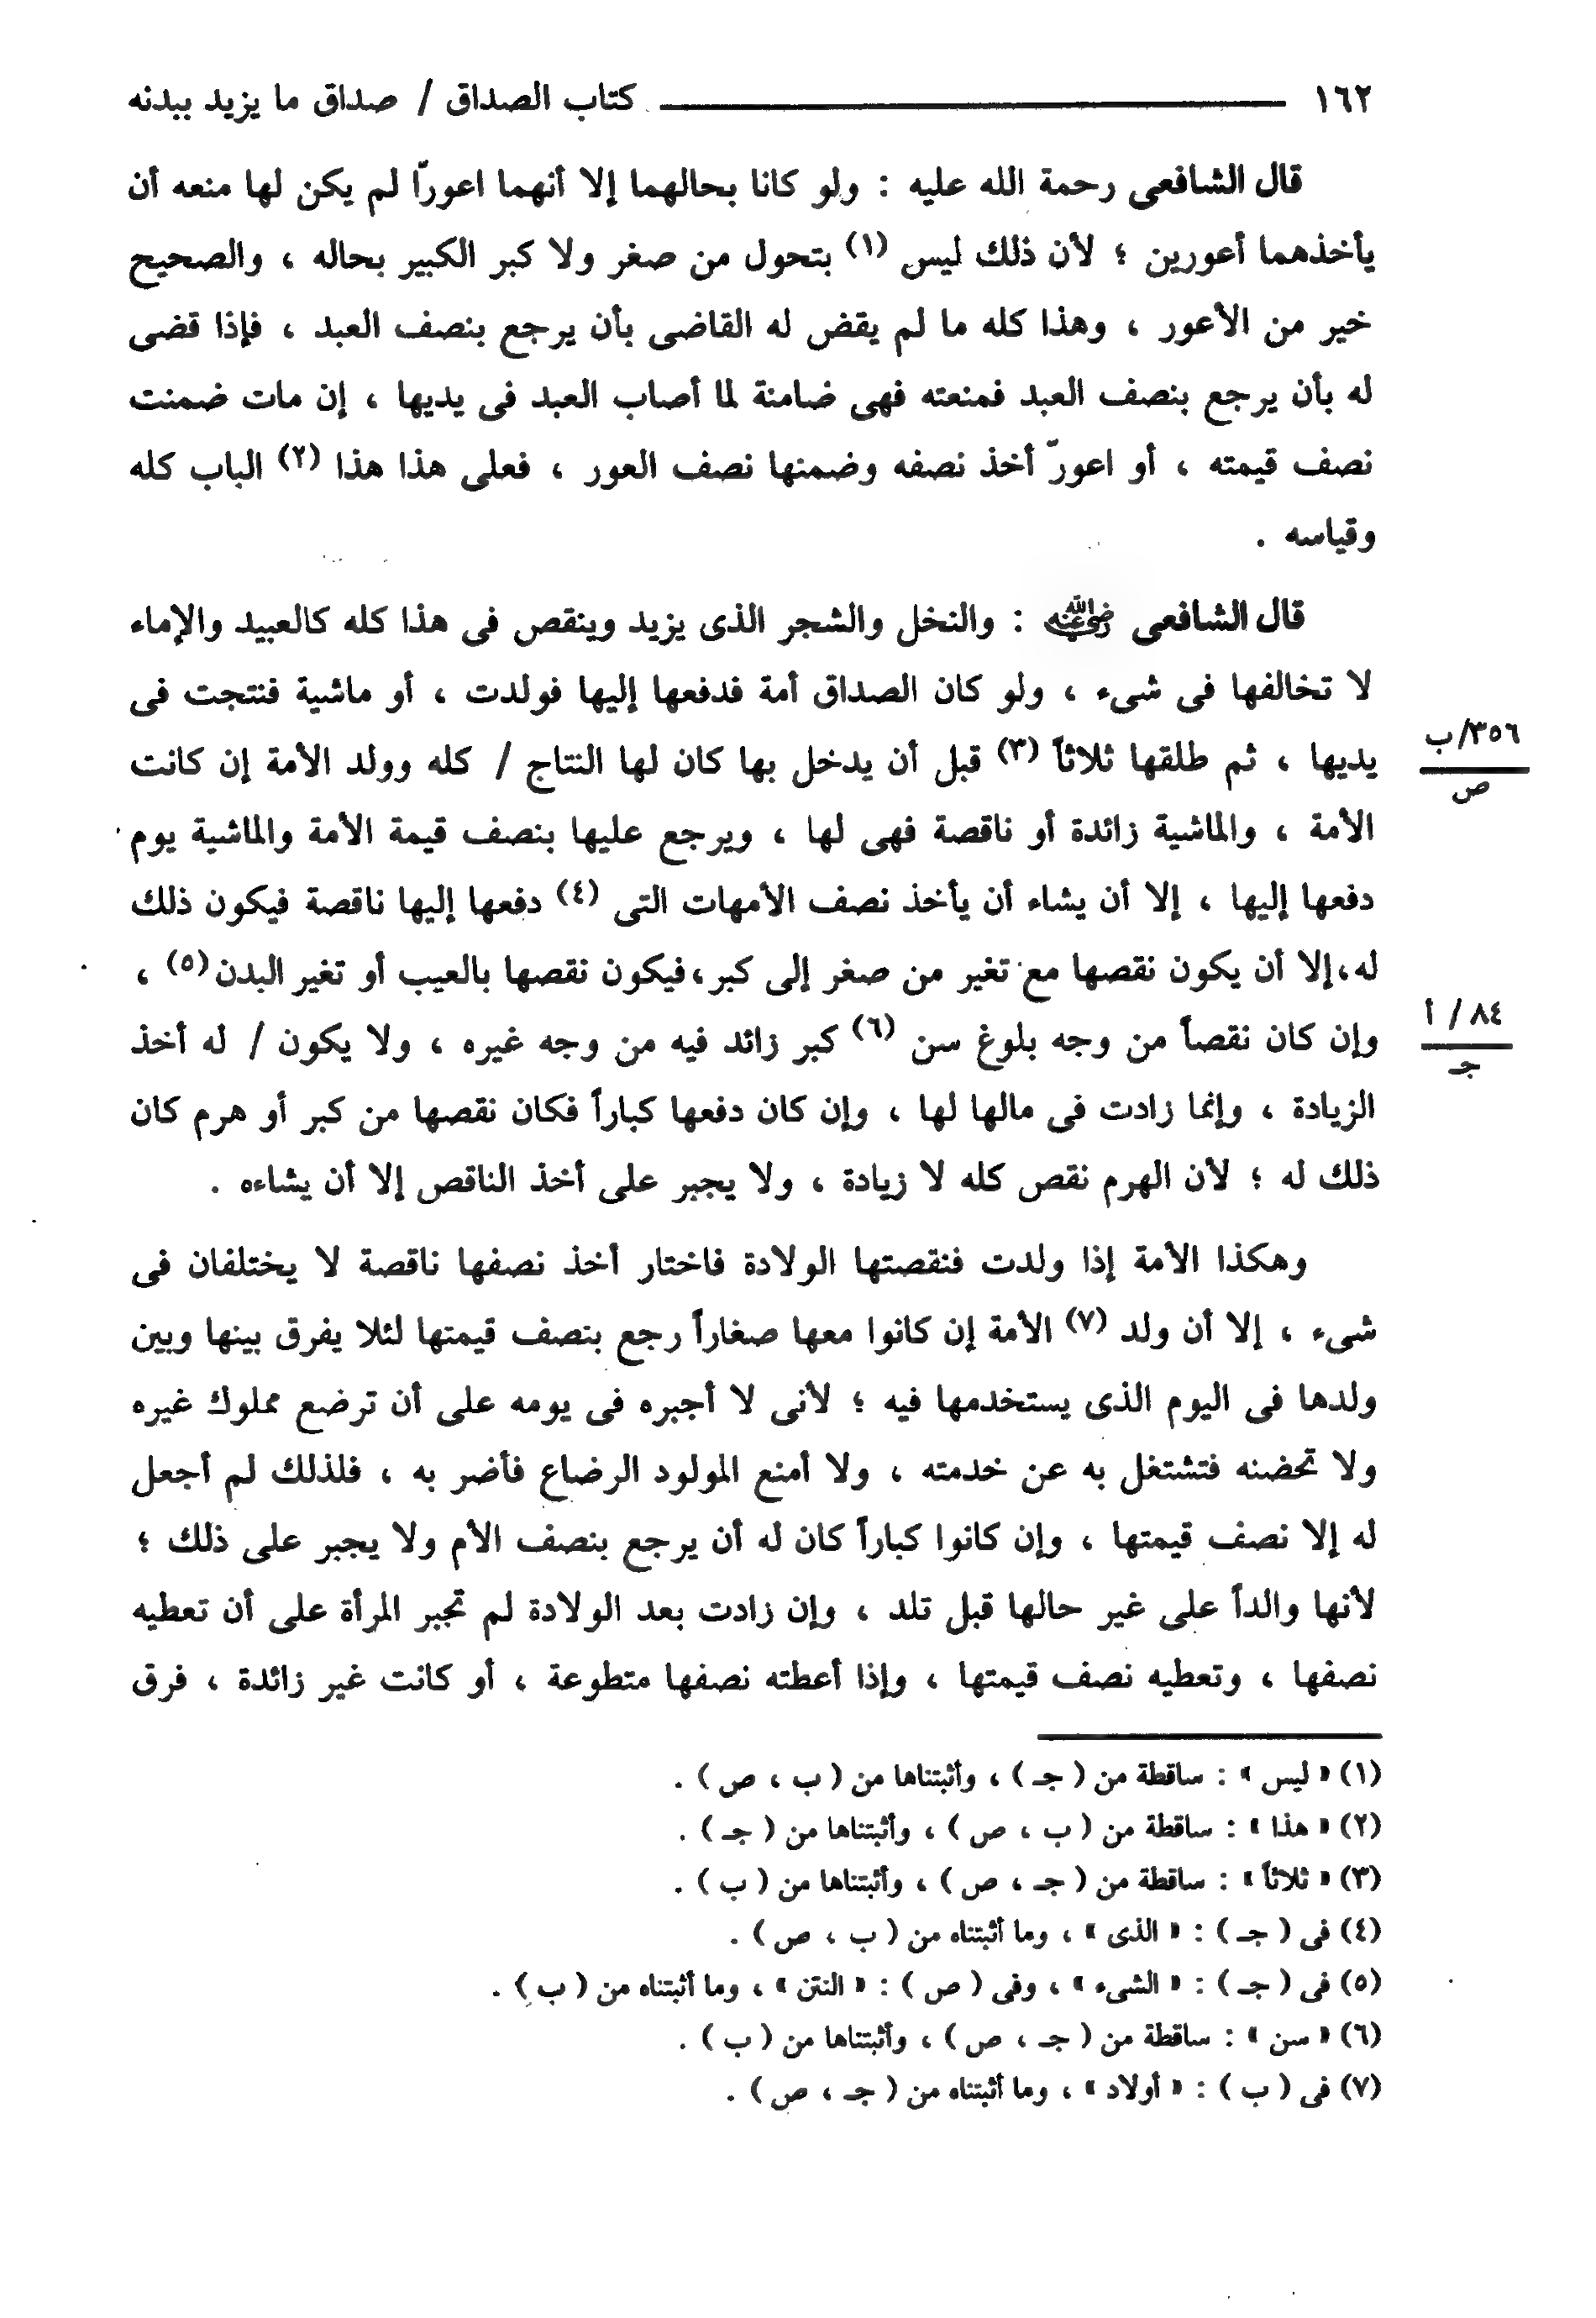 ١٦٢ كتاب الصداق / صداق ما يزيد ببدنه
قال الشافعى رحمة الله عليه : ولو كانا بحالهما إلا أنهما اعورّا لم يكن لها منعه أن
يأخذهما أعورين ؛ لأن ذلك ليس (١) بتحول من صغر ولا كبر الكبير بحاله ، والصحيح
خير من الأعور ، وهذا كله ما لم يقض له القاضى بأن يرجع بنصف العبد ، فإذا قضى
له بأن يرجع بنصف العبد فمنعته فهى ضامنة لما أصاب العبد فى يديها ، إن مات ضمنت
نصف قيمته ، أو اعورّ أخذ نصفه وضمنها نصف العور ، فعلى هذا هذا (٢) الباب كله
وقياسه .
قال الشافعى رضي الله عنه : والنخل والشجر الذى يزيد وينقص فى هذا كله كالعبيد والإماء
لا تخالفها فى شىء ، ولو كان الصداق أمة فدفعها إليها فولدت ، أو ماشية فنتجت فى
يديها ، ثم طلقها ثلاثاً (٣) قبل أن يدخل بها كان لها النتاج / كله وولد الأمة إن كانت
٣٥٦/ب
ص
الأمة ، والماشية زائدة أو ناقصة فهى لها ، ويرجع عليها بنصف قيمة الأمة والماشية يوم
دفعها إليها ، إلا أن يشاء أن يأخذ نصف الأمهات التى (٤) دفعها إليها ناقصة فيكون ذلك
له،إلا أن يكون نقصها مع تغير من صغر إلى كبر،فيكون نقصها بالعيب أو تغير البدن(٥) ،
وإن كان نقصاً من وجه بلوغ سن (٦) كبر زائد فيه من وجه غيره ، ولا يكون / له أخذ
٨٤ / أ
جـ
الزيادة ، وإنما زادت فى مالها لها ، وإن كان دفعها كباراً فكان نقصها من كبر أو هرم كان
ذلك له ؛ لأن الهرم نقص كله لا زيادة ، ولا يجبر على أخذ الناقص إلا أن يشاءه .
وهكذا الأمة إذا ولدت فنقصتها الولادة فاختار أخذ نصفها ناقصة لا يختلفان فى
شىء ، إلا أن ولد (٧) الأمة إن كانوا معها صغاراً رجع بنصف قيمتها لئلا يفرق بينها وبين
ولدها فى اليوم الذى يستخدمها فيه ؛ لأنى لا أجبره فى يومه على أن ترضع مملوك غيره
ولا تحضنه فتشتغل به عن خدمته ، ولا أمنع المولود الرضاع فأضر به ، فلذلك لم أجعل
له إلا نصف قيمتها ، وإن كانوا كباراً كان له أن يرجع بنصف الأم ولا يجبر على ذلك ؛
لأنها والداً على غير حالها قبل تلد ، وإن زادت بعد الولادة لم تجبر المرأة على أن تعطيه
نصفها ، وتعطيه نصف قيمتها ، وإذا أعطته نصفها متطوعة ، أو كانت غير زائدة ، فرق
(١) « ليس » : ساقطة من ( جـ ) ، وأثبتناها من ( ب ، ص ) .
(٢) « هذا » : ساقطة من ( ب ، ص ) ، وأثبتناها من ( جـ ) .
(٣) « ثلاثاً » : ساقطة من ( جـ ، ص ) ، وأثبتناها من ( ب ) .
(٤) فى ( جـ ) : « الذى » ، وما أثبتناه من ( ب ، ص ) .
(٥) فى ( جـ ) : « الشىء » ، وفى ( ص ) : « النتن » ، وما أثبتناه من ( ب ) .
(٦) « سن » : ساقطة من ( جـ ، ص ) ، وأثبتناها من ( ب ) .
(٧) فى ( ب ) : « أولاد » ، وما أثبتناه من ( جـ ، ص ) .